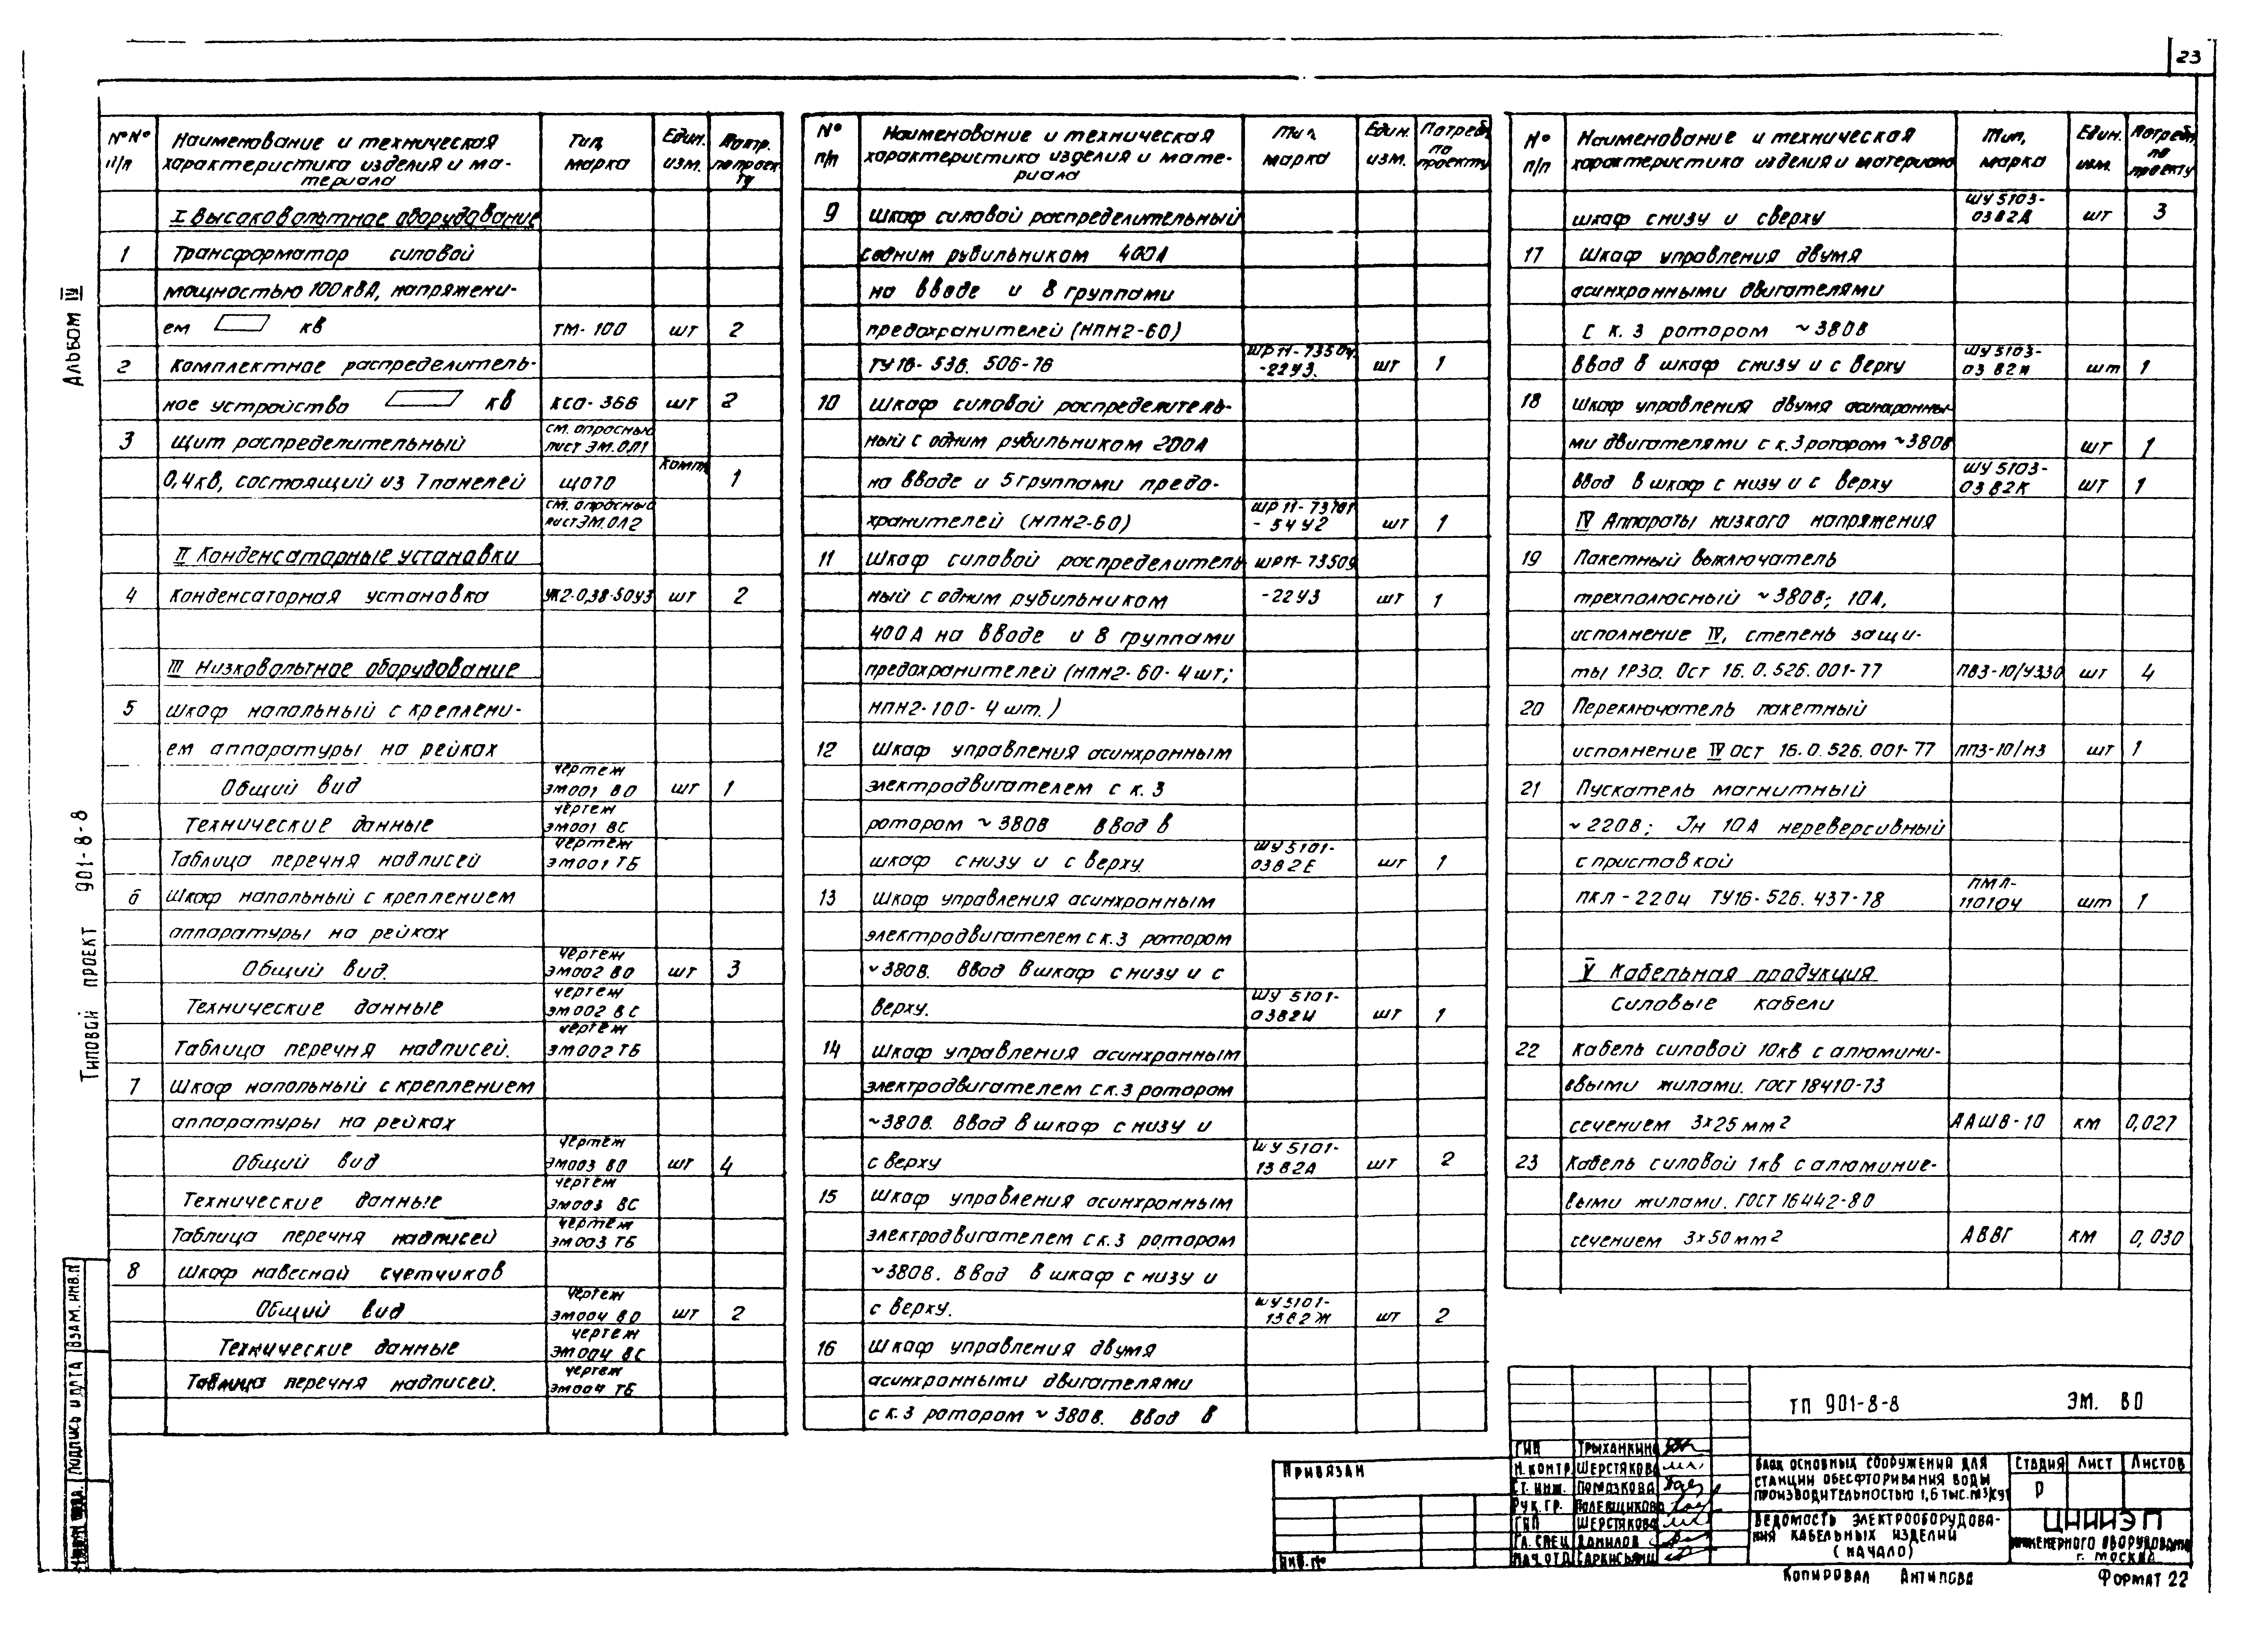 23
Альбом IV
Типовой проект 901-8-8
№№ п/п
Наименование и техническая характеристика изделия и материала
Тип, марка
Един. изм.
Потр. по проекту
I Высоковольтное оборудование
1 Трансформатор силовой
мощностью 100кВА, напряжени-
ем кв ТМ-100 шт 2
2 Комплектное распределитель-
ное устройство кв КСО-366 шт 2
3 Щит распределительный см. опросный лист ЭМ.ОЛ1
0,4кв, состоящий из 7 панелей ЩО70 компл 1
см. опросный лист ЭМ.ОЛ2
II Конденсаторные установки
4 Конденсаторная установка УК2-0,38-50У3 шт 2
III Низковольтное оборудование
5 Шкаф напольный с креплени-
ем аппаратуры на рейках
Общий вид чертеж ЭМ001 ВО шт 1
Технические данные чертеж ЭМ001 ВС
Таблица перечня надписей чертеж ЭМ001 ТБ
6 Шкаф напольный с креплением
аппаратуры на рейках
Общий вид. чертеж ЭМ002 ВО шт 3
Технические данные чертеж ЭМ002 ВС
Таблица перечня надписей. чертеж ЭМ002 ТБ
7 Шкаф напольный с креплением
аппаратуры на рейках
Общий вид чертеж ЭМ003 ВО шт 4
Технические данные чертеж ЭМ003 ВС
Таблица перечня надписей чертеж ЭМ003 ТБ
8 Шкаф навесной счетчиков
Общий вид чертеж ЭМ004 ВО шт 2
Технические данные чертеж ЭМ004 ВС
Таблица перечня надписей. чертеж ЭМ004 ТБ
№ п/п
Наименование и техническая характеристика изделия и материала
Тип, марка
Един. изм.
Потребн. по проекту
9 Шкаф силовой распределительный
с одним рубильником 400А
на вводе и 8 группами
предохранителей (НПН2-60)
ТУ16-536.506-76 ШР11-73504-22У3. шт 1
10 Шкаф силовой распределитель-
ный с одним рубильником 200А
на вводе и 5 группами предо-
хранителей (НПН2-60) ШР11-73701-54У2 шт 1
11 Шкаф силовой распределитель ШР11-73509
ный с одним рубильником -22У3 шт 1
400А на вводе и 8 группами
предохранителей (НПН2-60-4шт;
НПН2-100-4 шт.)
12 Шкаф управления асинхронным
электродвигателем с к.з
ротором ~380в Ввод в
шкаф с низу и с верху. ШУ5101-0382Е шт 1
13 Шкаф управления асинхронным
электродвигателем с к.з ротором
~380в. Ввод в шкаф с низу и с
верху. ШУ 5101-0382И шт 1
14 Шкаф управления асинхронным
электродвигателем с к.з ротором
~380в. Ввод в шкаф с низу и
с верху ШУ 5101-1382А шт 2
15 Шкаф управления асинхронным
электродвигателем с к.з ротором
~380в. Ввод в шкаф с низу и
с верху. ШУ5101-1382Ж шт 2
16 Шкаф управления двумя
асинхронными двигателями
с к.з ротором ~380в. Ввод в
№ п/п
Наименование и техническая характеристика изделия и материала
Тип, марка
Един. изм.
Потребн. по проекту
шкаф снизу и сверху ШУ5103-0382Д шт 3
17 Шкаф управления двумя
асинхронными двигателями
с к.з ротором ~380в
Ввод в шкаф снизу и с верху ШУ5103-0382И шт 1
18 Шкаф управления двумя асинхронны-
ми двигателями с к.з ротором ~380в шт 1
Ввод в шкаф с низу и с верху ШУ 5103-0382К шт 1
IV Аппараты низкого напряжения
19 Пакетный выключатель
трехполюсный ~380в; 10А,
исполнение IV, степень защи-
ты 1Р30. Ост 16.0.526.001-77 ПВ3-10/У330 шт 4
20 Переключатель пакетный
исполнение IV Ост 16.0.526.001-77 ПП3-10/Н3 шт 1
21 Пускатель магнитный
~220в; Iн 10А нереверсивный
с приставкой
ПКЛ-2204 ТУ16-526.437-78 ПМЛ-110104 шт 1
V Кабельная продукция
Силовые кабели
22 Кабель силовой 10кв с алюмини-
евыми жилами. ГОСТ 18410-73
сечением 3×25мм² ААШВ-10 км 0,027
23 Кабель силовой 1кв с алюминие-
выми жилами. ГОСТ 16442-80
сечением 3×50мм² АВВГ км 0,030
Привязан
Инв.№
ГИП Трыханкина
Н.контр Шерстякова
Ст. инж. Помазкова
Рук. гр. Полевщикова
ГИП Шерстякова
Гл. спец Данилов
Нач. отд Саркисьянц
ТП 901-8-8 ЭМ. ВО
Блок основных сооружений для
станции обесфторивания воды
производительностью 1,6 тыс. м³/сут
Стадия Лист Листов
Р
Ведомость электрооборудова-
ния кабельных изделий
(начало)
ЦНИИЭП
инженерного оборудования
г. Москва
Копировал Антипова
Формат 22
Взам. инв. №
Подпись и дата